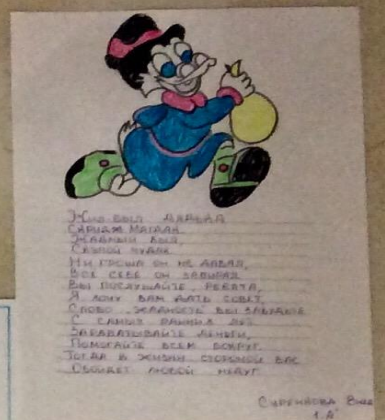 Жил был дядька
Скрудж Макдак.
Жадный был,
Скупой чудак.
Ни гроша он не давал,
Все себе он забирал.
Вы послушайте, ребята,
Я хочу вам дать совет,
Слово "жадность" вы забудьте
С самых ранних лет.
Зарабатывайте деньги,
Помогайте всем вокруг.
Тогда в жизни стороной вас
Обойдет любой недуг.
1 А